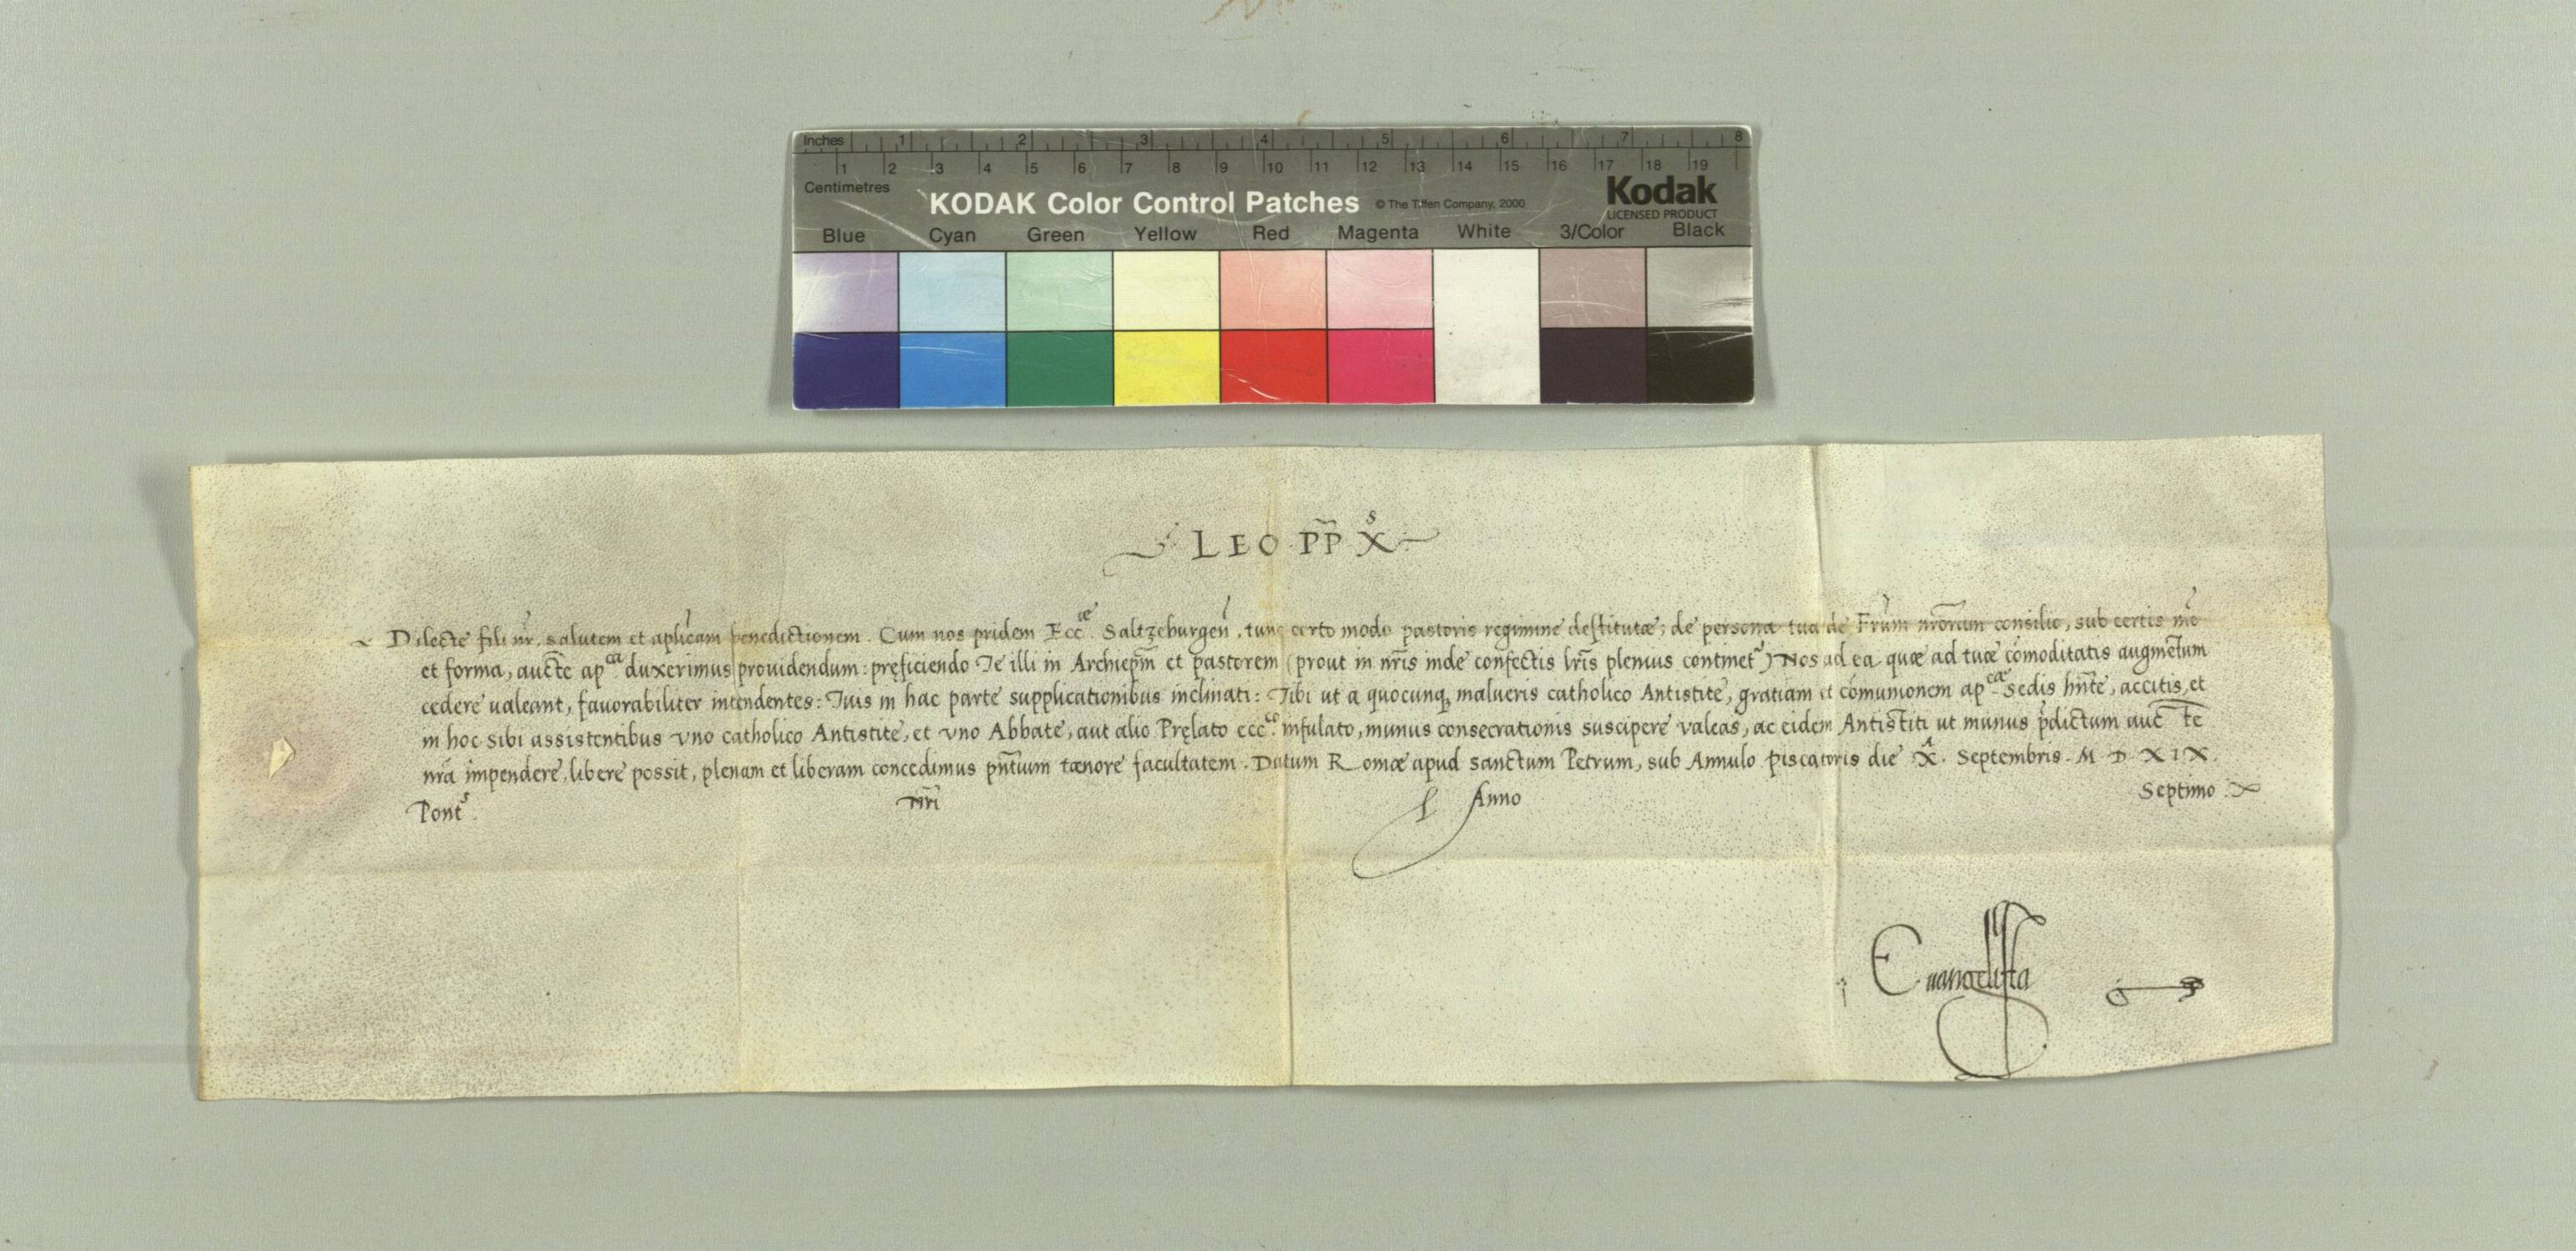 Inches 1 2 3 4 5 6 7 8
1 2 3 4 5 6 7 8 9 10 11 12 13 14 15 16 17 18 19
Centimetres
KODAK Color Control Patches © The Tiffen Company, 2000 Kodak
LICENSED PRODUCT
Blue Cyan Green Yellow Red Magenta White 3/Color Black
LEO PP̃ X^s
Dilecte fili nr̃. salutem et aplicam benedictionem. Cum nos pridem Ecc^æ. Saltzeburgen̄, tunc certo modo pastoris regimine destitutæ; de persona tua de Frum nrorum consilio, sub certis mō
et forma, aucte ap^ca duxerimus prouidendum: pręficiendo Te illi in Archiepm̄ et pastorem (prout in nr̃is inde confectis lr̃is plenius continet^r) Nos ad ea quæ ad tuæ cōmoditatis augmētum
cedere ualeant, fauorabiliter intendentes: Tuis in hac parte supplicationibus inclinati: Tibi ut a quocunq; malueris catholico Antistite, gratiam et cōmunionem ap^cæ Sedis hñte, accitis, et
in hoc sibi assistentibus vno catholico Antistite, et vno Abbate, aut alio Pręlato ecc^co. infulato, munus consecrationis suscipere valeas, ac eidem Antistiti ut munus p̄dictum auc̄te
nr̃a impendere, libere possit, plenam et liberam concedimus pñtium tænore facultatem. Datum Romæ apud sanctum Petrum, sub Annulo piscatoris die X^a. Septembris. M D XIX.
Pont^s. Nr̃i Anno Septimo
Euangelista